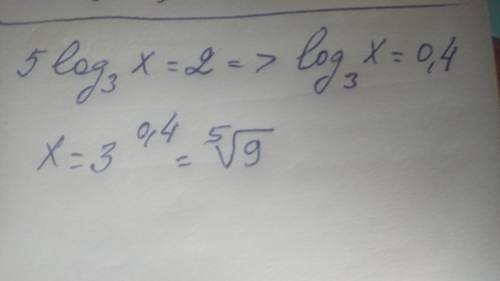 5 log₃ x = 2 => log₃ x = 0,4
x = 3^0,4 = ⁵√9